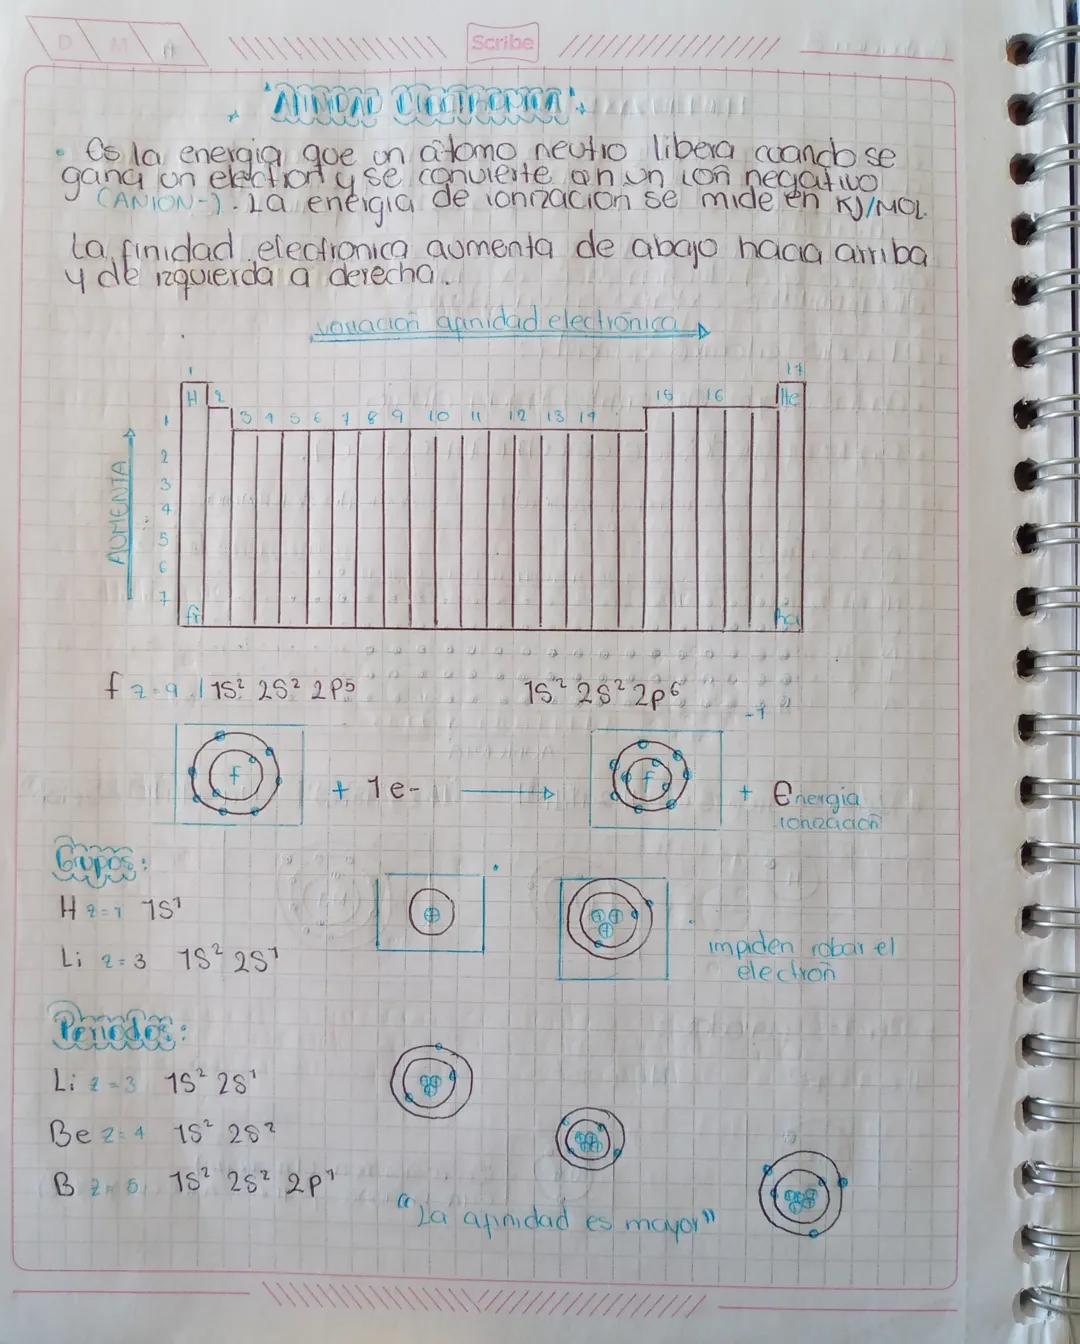 D M A
Scribe
"AFINIDAD ELECTRONICA"
• Es la energia que un átomo neutro libera cuando se
gana un electron y se convierte en un ion negativo
(ANION-). La energia de ionizacion se mide en KJ/MOL.
La finidad electronica aumenta de abajo hacia arriba
y de izquierda a derecha.
variación afinidad electrónica
1 17
H 2 15 16 He
1 3 4 5 6 7 8 9 10 11 12 13 14
2
3
4
5
6
7
AUMENTA
fr
f z=9 1S² 2S² 2P5 1S² 2S² 2p⁶
-1
f + 1e- f + Energia
ionización
Grupos:
H z=1 1S¹
Li z=3 1S² 2S¹
impiden robar el
electron
Periodos:
Li z=3 1S² 2S¹
Be z=4 1S² 2S²
B z=5 1S² 2S² 2p¹
"La afinidad es mayor"